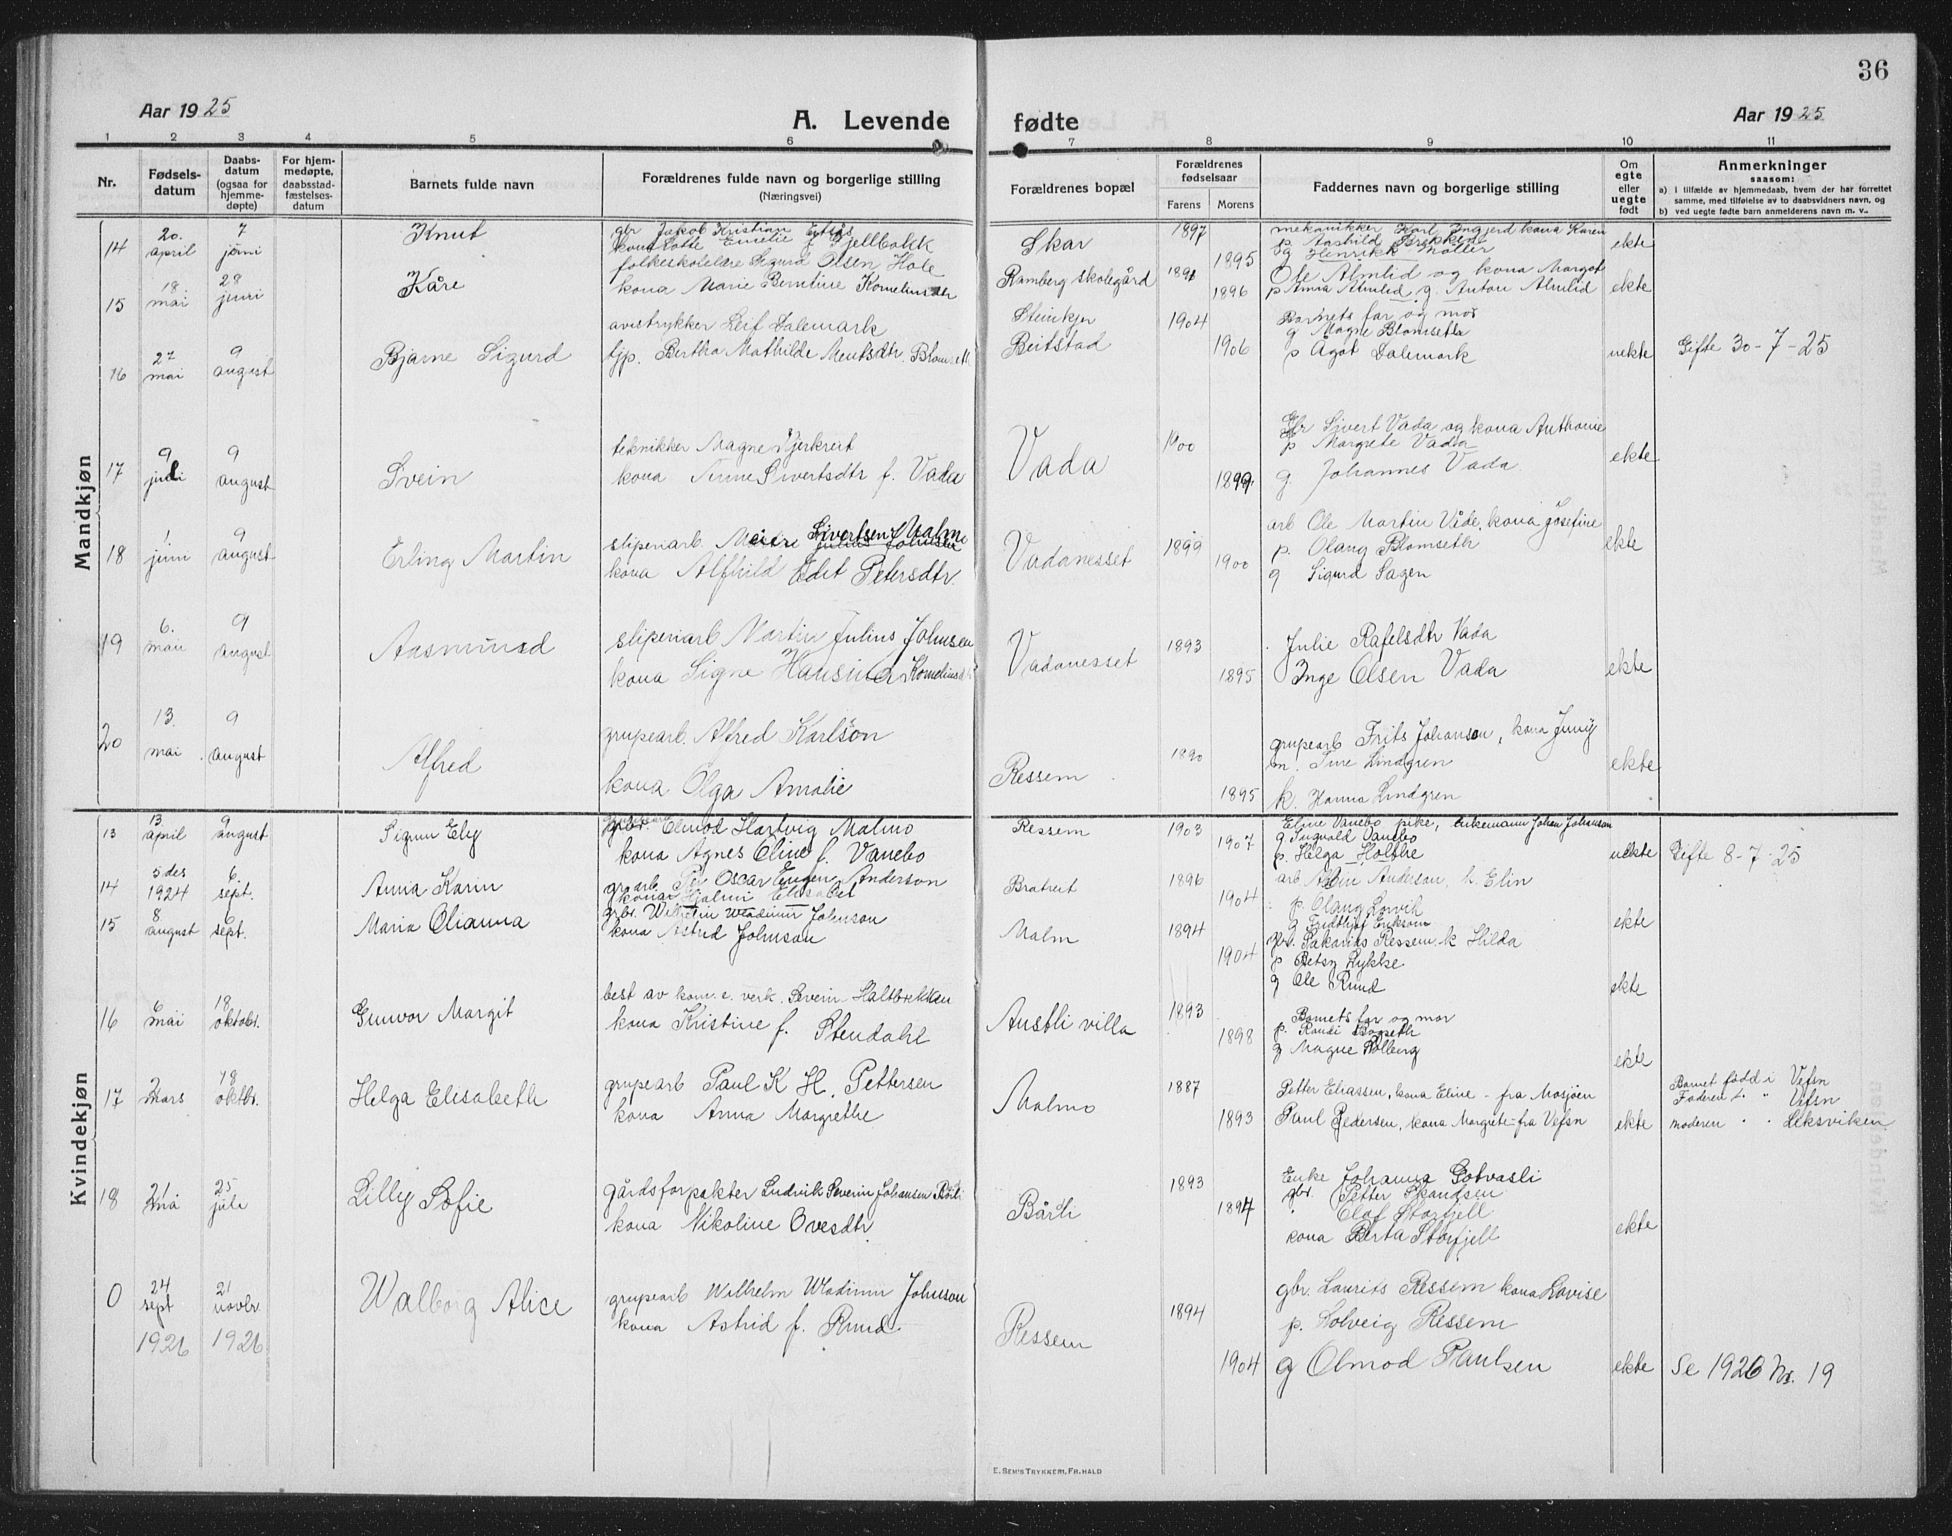 36
Aar 1925
A. Levende fødte
Aar 1925
1 2 3 4 5 6 7 8 9 10 11
Nr.
Fødselsdatum
Daabsdatum (ogsaa for hjemmedøpte)
For hjemmedøpte, daabsstadfæstelsesdatum
Barnets fulde navn
Forældrenes fulde navn og borgerlige stilling (Næringsvei)
Forældrenes bopæl
Forældrenes fødselsaar
Farens
Morens
Faddernes navn og borgerlige stilling
Om egte eller uegte født
Anmerkninger
saasom:
a) i tilfælde av hjemmedaab, hvem der har forrettet samme, med tilføielse av to daabsvidners navn, og
b) ved uegte fødte barn anmelderens navn m. v.
Mandkjøn
14 20. april 7 juni Knut
gbr Jakob Kristian
kona Lotte Emelie f. Fjellbakk
Skar 1897 1895
mekanikker Karl Ingjerd kona Karen
p Aashild Brekken
g Henrikk Møller
ekte
15 18 mai 28 juni Kåre
folkeskolelære Sigurd Olsen Hole
kona Marie Berntine Kornelinsdtr
Ramberg skolegård 1891 1896
Ole Almlid og kona Margot
p Anna Almlid g. Anton Almlid
ekte
16 27 mai 9 august Bjarne Sigurd
avistrykker Leif Dalemark
tjp. Bertha Mathilde Mentsdtr.
Steinkjer
Beitstad
1904 1906
Barnets far og mor
g Magne Blomseth
p Agot Dalemark
uekte
Gifte 30-7-25
17 9 juli 9 august Svein
teknikker Magne Bjerkreit
kona Anne Sivertsdtr f. Vada
Vada 1900 1899
Gbr Sivert Vada og kona Anthonie
p Margrete Vada
g. Johannes Vada
ekte
18 1 juni 9 august Erling Martin
sliperiarb. Sivertsen Malmo
kona Alfhild Edit Petersdtr.
Vadanesset 1899 1900
arb Ole Martin Våde, kona Josefine
p. Olaug Blomseth
g Sigurd Sagen
ekte
19 6. mai 9 august Aasmund
sliperiarb Martin Julius Johnsen
kona Signe Hansine Kornelius
Vadanesset 1893 1895
Julie Rafelsdtr Vada
Inge Olsen Vada
ekte
20 13. mai 9 august Alfred
grupearb. Alfred Karlson
kona Olga Amalie
Ressem 1890 1895
grupearb Frits Johanson, kona Jenny
m. Ture Lindgren
k. Hanna Lindgren
ekte
Kvindekjøn
13 13 april 9 august Sigrun Ely
gbr. Elmod Hartvig Malmo
kona Agnes Eline f. Vanebo
Ressem 1903 1907
Eline Vanebo pike, enkemann Johan Johnson
g Ingvald Vanebo
p. Helga Holthe
uekte
Gifte 8-7-25
14 5 des 1924 6 sept. Anna Karin
gr.arb Per Oscar Eugen Anderson
kona Hjalmi Elisabet
Bratreit 1896 1904
arb Albin Anderson, k. Elin
p. Olaug Lorvik
g Fridthjof Erikson
ekte
15 8 august 6 sept. Maria Olianna
grbr. Wilhelm Wladimir Johnson
kona Astrid Johnson
Malm 1894 1904
gbr. Sakarias Ressem. k Hilda
p Betsy Lykke
g Ole Rund
ekte
16 6 mai 18 oktobr. Gunvor Margit
best av kom. e. verk. Severin Haltbrekken
kona Kristine f. Stendahl
Austli villa 1893 1898
Barnets far og mor
p. Randi Bogseth
g Magne Solberg
ekte
17 2 mars 18 oktbr. Helga Elisabeth
grupearb Paul K H. Pettersen
kona Anna Margrethe
Malmo 1887 1893
Petter Eliassen, kona Eline - fra Mosjøen
Paul Pedersen, kona Margrete - fra Vefsn
ekte
Barnet født i Vefsn
Faderen f. " Vefsn
moderen " " Leksviken
18 21 mai 25 julr Lilly Sofie
gårdsforpakter Ludvik Severin Johansen Bårli
kona Nikoline Ovesdtr
Bårli 1893 1894
Enke Johanna Gotvasli
gbr. Petter Skandsen
" Olaf Storfjell
kona Berta Storfjell
ekte
0 24 sept 1926 21 novbr 1926 Walborg Alice
grupearb Wilhelm Wladimir Johnson
kona Astrid f. Rund
Ressem 1894 1904
gbr. Laurits Ressem kona Lovise
p. Solveig Ressem
g Olmod Paulsen
ekte
Se 1926 Nr. 19
E. SEM'S TRYKKERI, FR.HALD